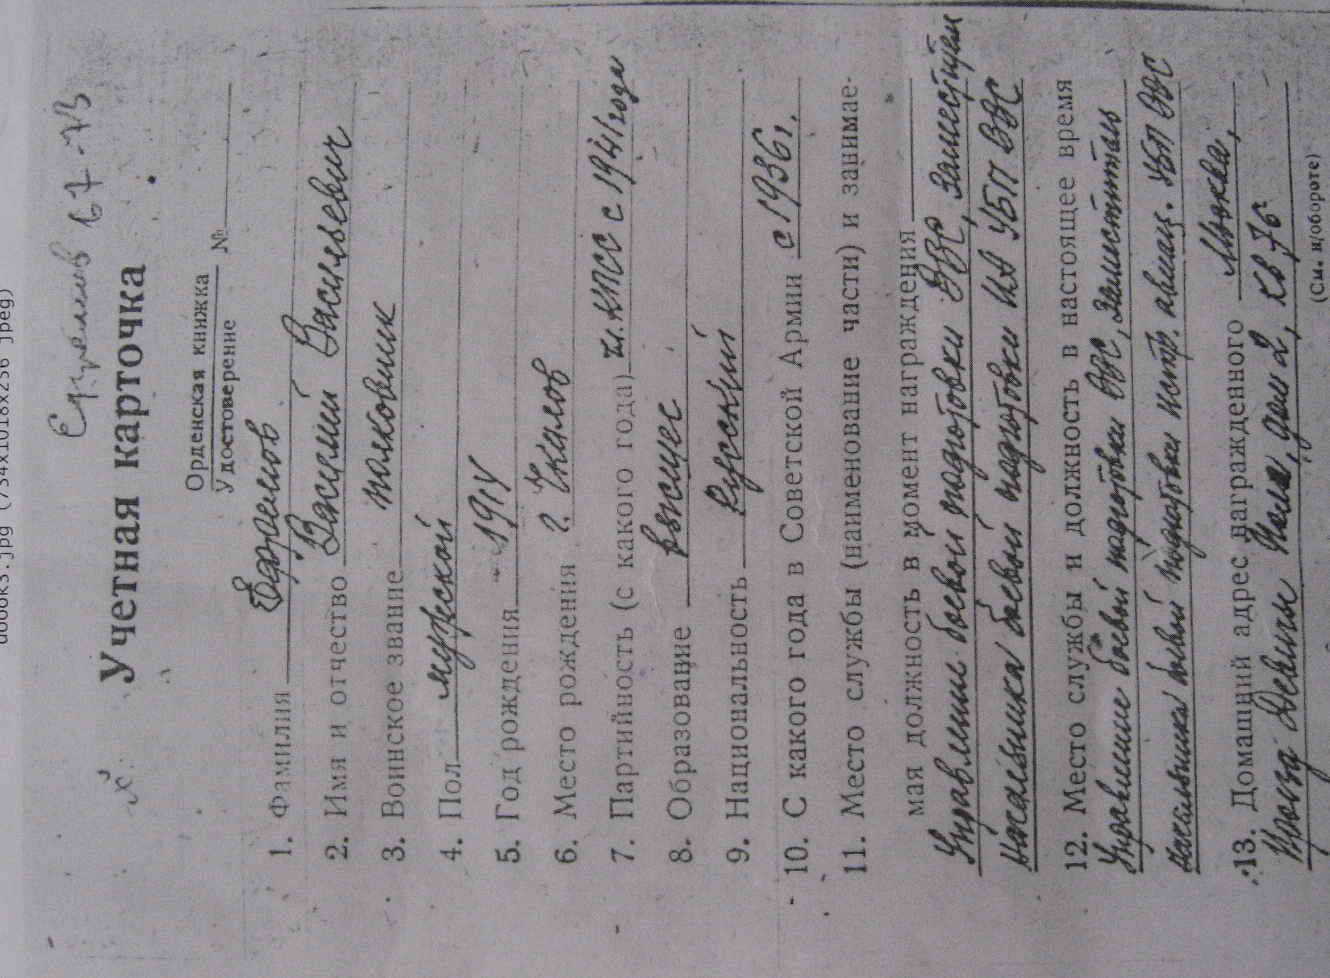 Ефремов 67-73
Учетная карточка
Орденская книжка
Удостоверение №
1. Фамилия Ефремов
2. Имя и отчество Василий Васильевич
3. Воинское звание полковник
4. Пол мужской
5. Год рождения 1914
6. Место рождения г. Чкалов
7. Партийность (с какого года) чл. КПСС с 1941 года
8. Образование высшее
9. Национальность Русский
10. С какого года в Советской Армии с 1936 г.
11. Место службы (наименование части) и занимае-
мая должность в момент награждения
Управление боевой подготовки ВВС, Заместитель
Начальника боевой подготовки ИА УБП ВВС
12. Место службы и должность в настоящее время
Управление боевой подготовки ВВС, Заместитель
начальника боевой подготовки истр. авиац. УБП ВВС
13. Домашний адрес награжденного Москва,
дом 2, кв 76
(См. н/обороте)